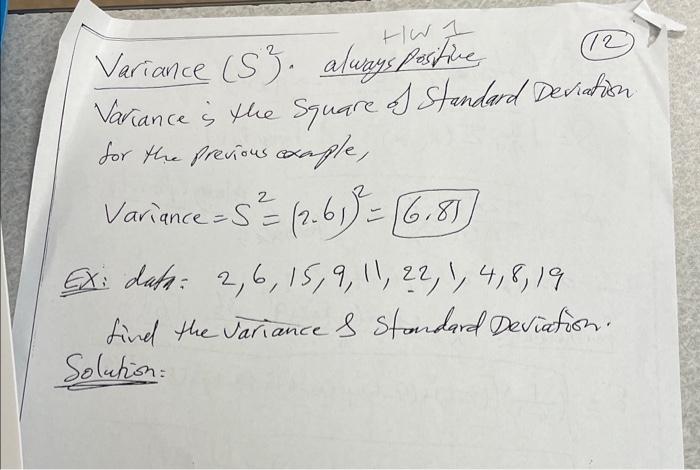 HW 1
12
Variance (S²). always positive
Variance is the Square of Standard Deviation
for the previous example,
Variance = S² = (2.61)² = 6.81
Ex: data: 2, 6, 15, 9, 11, 22, 1, 4, 8, 19
find the Variance & Standard Deviation.
Solution: